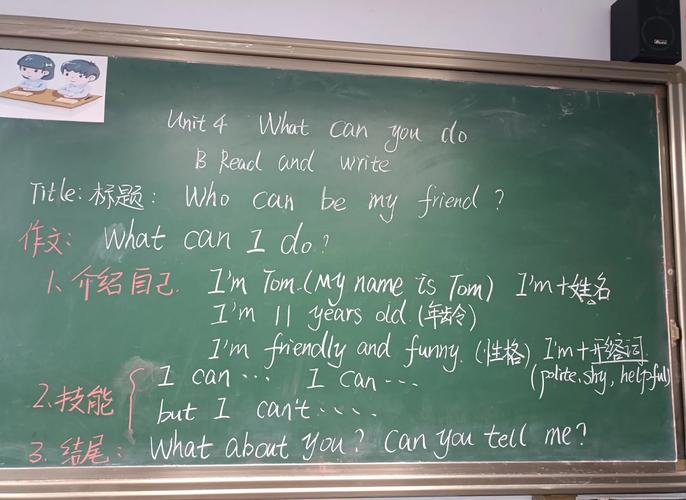 Unit 4 What can you do
B Read and write
Title: 标题: Who can be my friend?
作文: What can I do?
1. 介绍自己. I'm Tom.(My name is Tom) I'm+姓名
I'm 11 years old.(年龄)
I'm friendly and funny.(性格) I'm+形容词.
(polite, shy, helpful)
2.技能 I can... I can...
but I can't....
3. 结尾: What about you? Can you tell me?